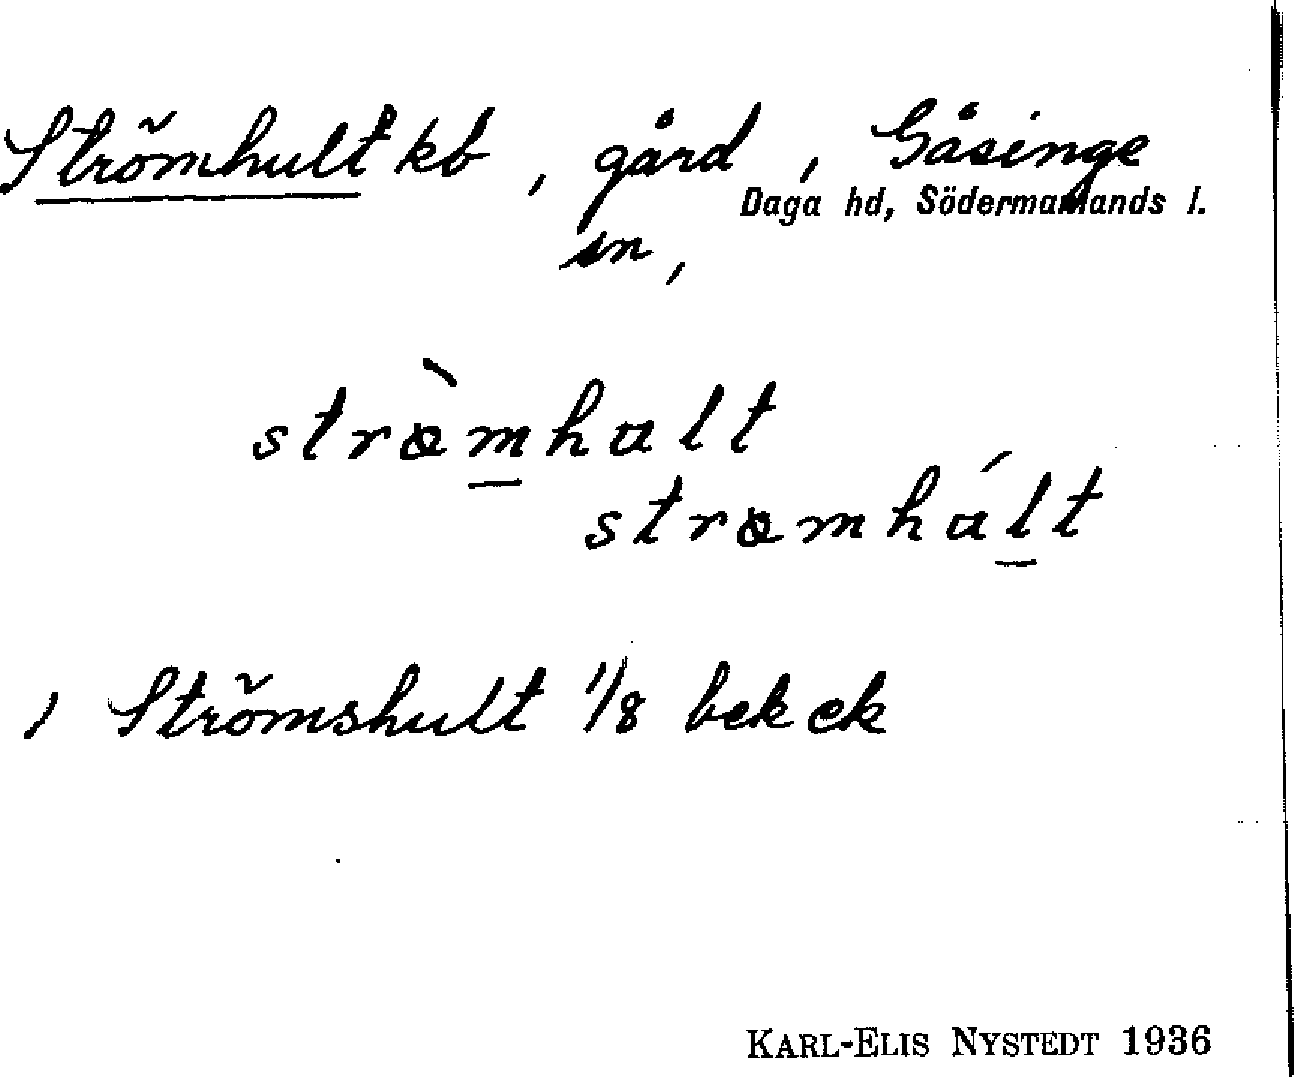 Strömhult kb, gård, Gåsinge
Daga hd, Södermanlands l.
sn,
strø̀mhαlt
strømhάlt
, Strömshult 1/8 bek ek
KARL-ELIS NYSTEDT 1936